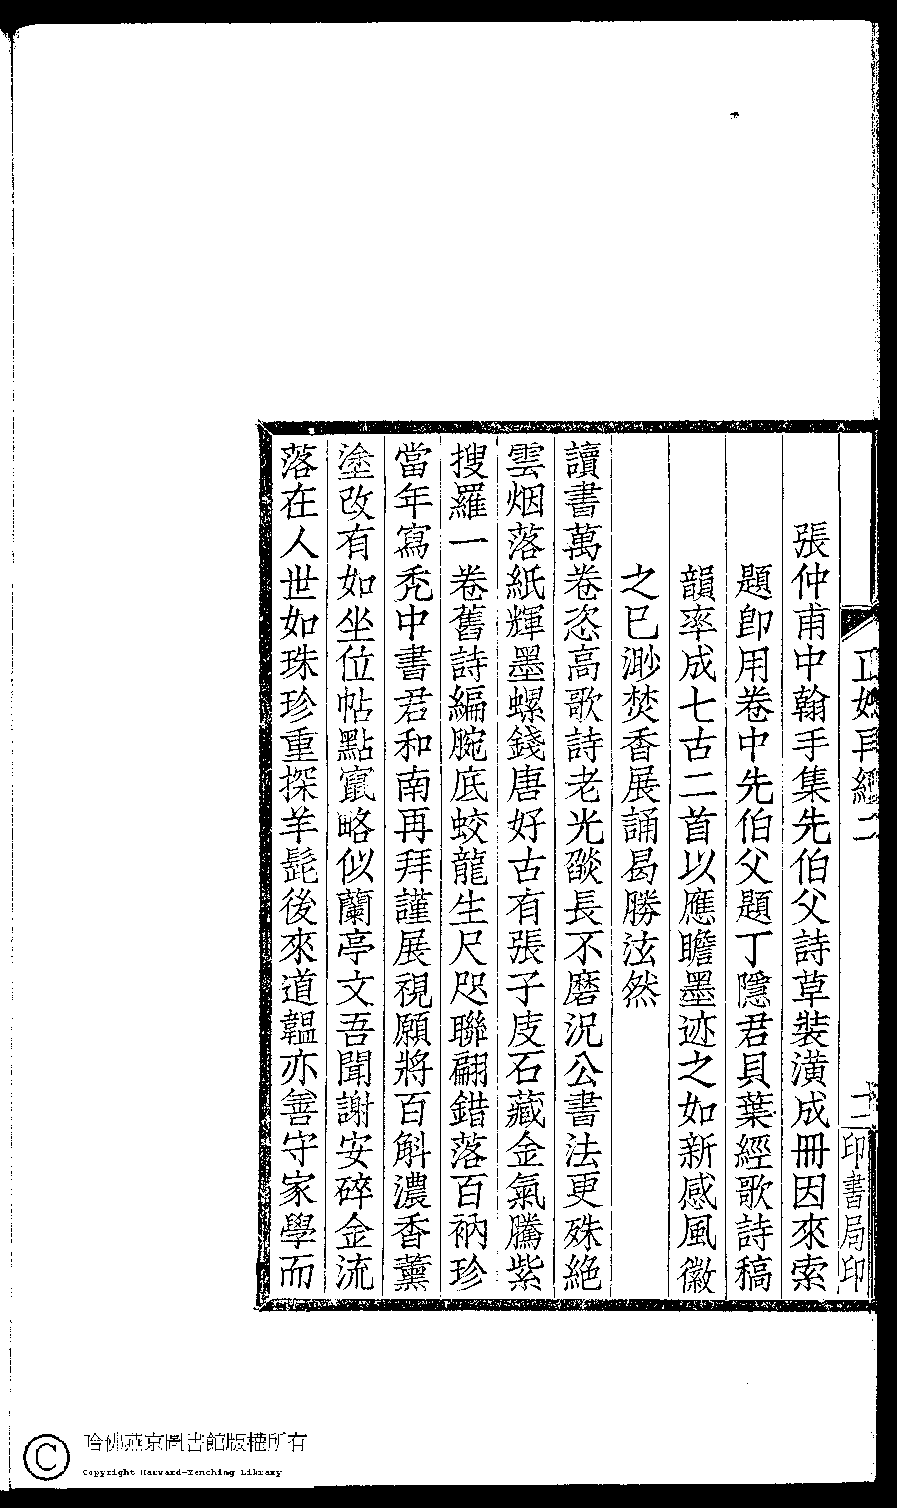 張仲甫中翰手集先伯父詩草裝潢成冊因來索
題卽用卷中先伯父題丁隱君貝葉經歌詩稿
韻率成七古二首以應瞻墨迹之如新感風徽
之已渺焚香展誦曷勝泫然
讀書萬卷恣高歌詩老光燄長不磨況公書法更殊絕
雲烟落紙輝墨螺錢唐好古有張子庋石藏金氣騰紫
搜羅一卷舊詩編腕底蛟龍生尺咫聯翩錯落百衲珍
當年寫禿中書君和南再拜謹展視願將百斛濃香薰
塗改有如坐位帖點竄略似蘭亭文吾聞謝安碎金流
落在人世如珠珍重探羊髭後來道韞亦善守家學而
二
十二
印書局印
哈佛燕京圖書館版權所有
Copyright Harvard-Yenching Library